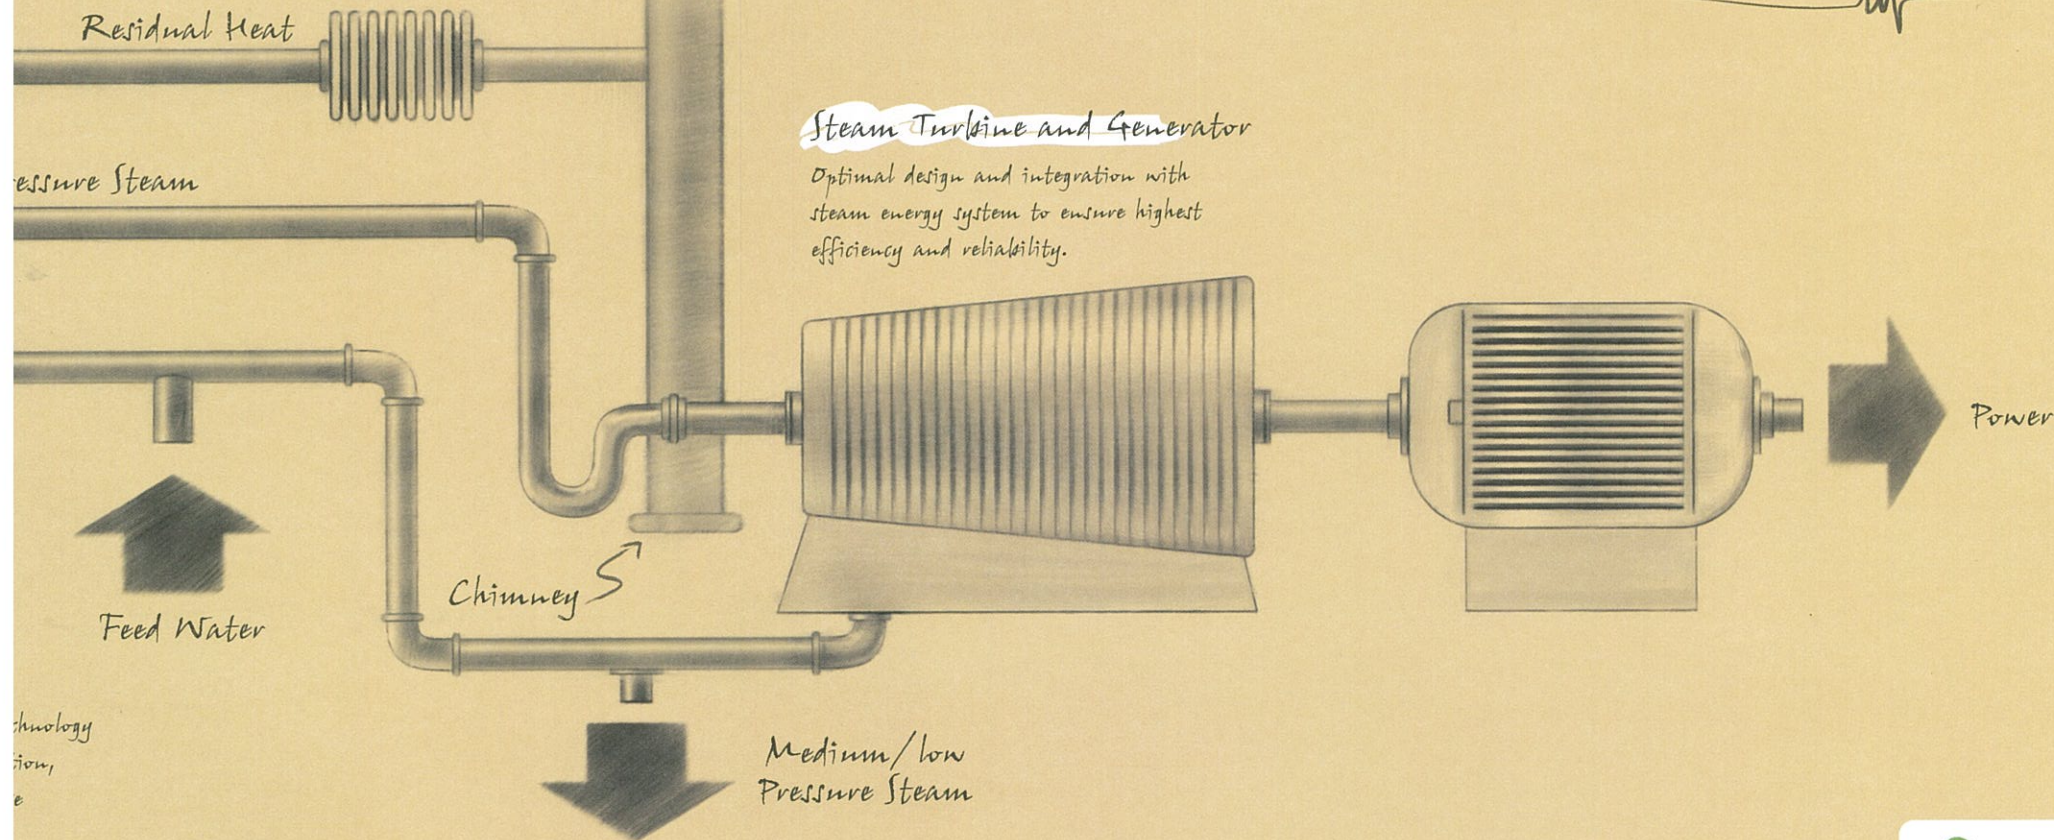 Residual Heat
Steam Turbine and Generator
Optimal design and integration with
steam energy system to ensure highest
efficiency and reliability.
essure Steam
Power
Chimney
Feed Water
Medium/low
Pressure Steam
chnology
tion,
e